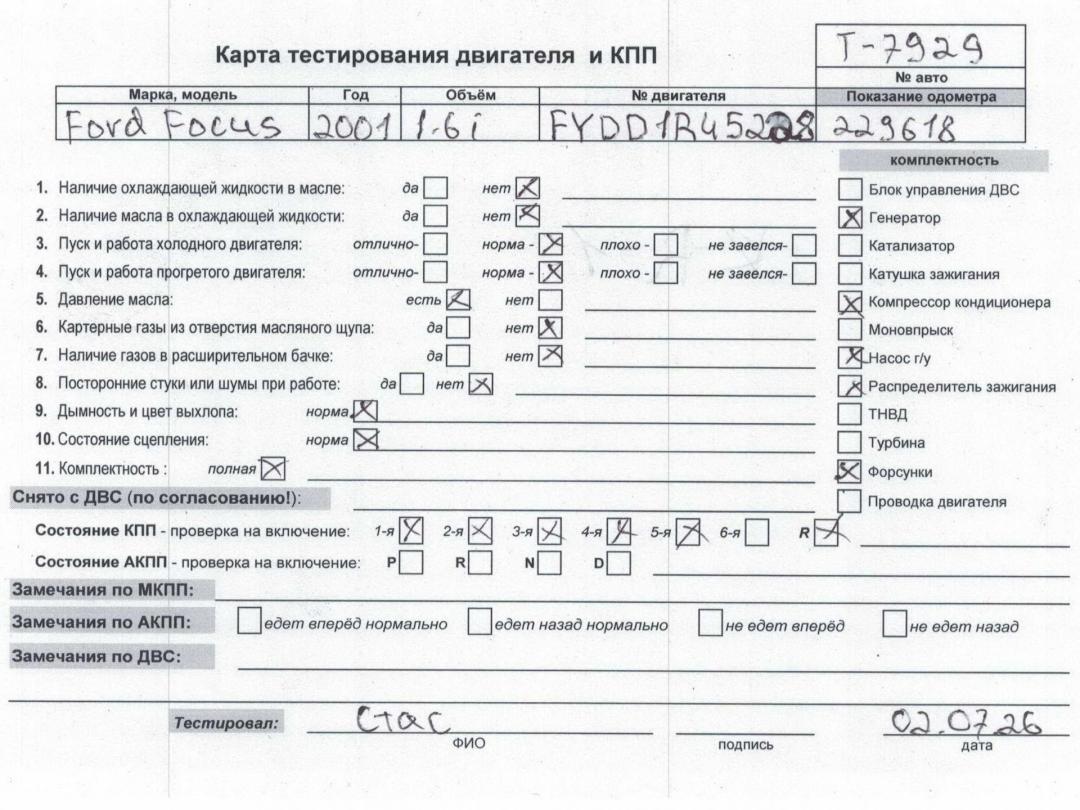 Карта тестирования двигателя и КПП
T-7929
№ авто
Марка, модель Год Объём № двигателя Показание одометра
Ford Focus 2001 1.6i FYDD1R45228 229618
комплектность
1. Наличие охлаждающей жидкости в масле: да нет
Блок управления ДВС
2. Наличие масла в охлаждающей жидкости: да нет
Генератор
3. Пуск и работа холодного двигателя: отлично- норма - плохо - не завелся-
Катализатор
4. Пуск и работа прогретого двигателя: отлично- норма - плохо - не завелся-
Катушка зажигания
5. Давление масла: есть нет
Компрессор кондиционера
6. Картерные газы из отверстия масляного щупа: да нет
Моновпрыск
7. Наличие газов в расширительном бачке: да нет
Насос г/у
8. Посторонние стуки или шумы при работе: да нет
Распределитель зажигания
9. Дымность и цвет выхлопа: норма
ТНВД
10. Состояние сцепления: норма
Турбина
11. Комплектность : полная
Форсунки
Снято с ДВС (по согласованию!):
Проводка двигателя
Состояние КПП - проверка на включение: 1-я 2-я 3-я 4-я 5-я 6-я R
Состояние АКПП - проверка на включение: P R N D
Замечания по МКПП:
Замечания по АКПП: едет вперёд нормально едет назад нормально не едет вперёд не едет назад
Замечания по ДВС:
Тестировал: Стас 02.07.26
ФИО подпись дата